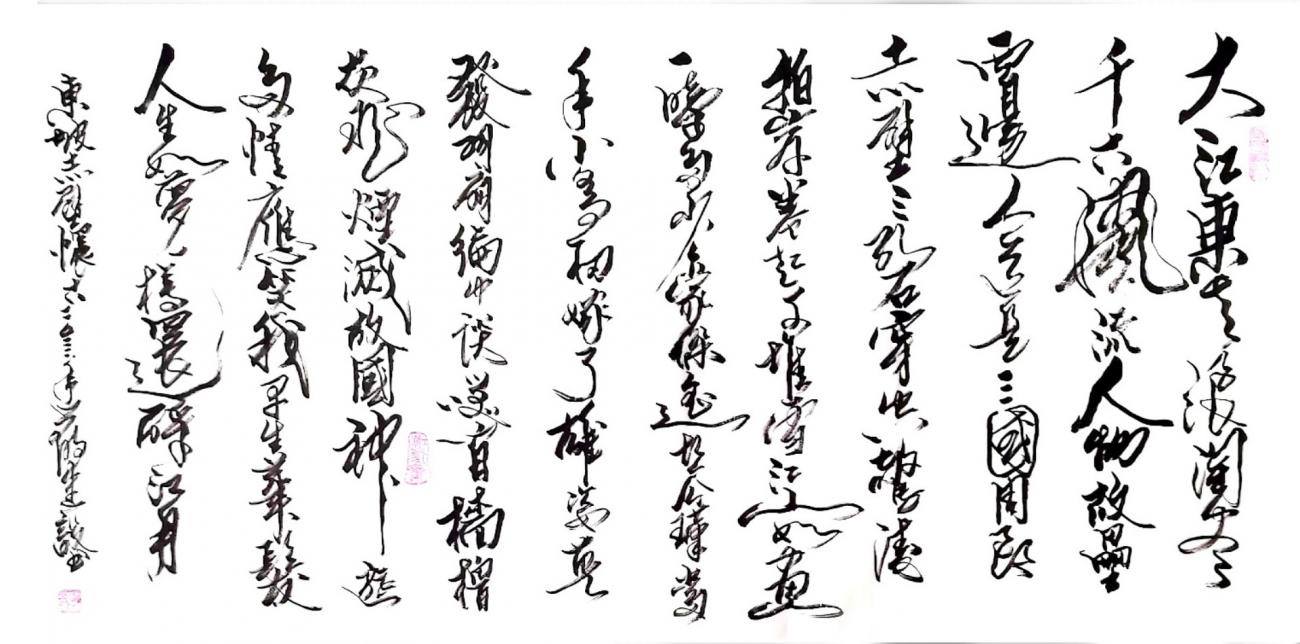 大江東去浪淘盡
千古風流人物故壘
西邊人道是三國周郎
赤壁亂石穿空驚濤
拍岸卷起千堆雪江山如畫
一時多少豪傑遙想公瑾當
年小喬初嫁了雄姿英
發羽扇綸巾談笑間檣櫓
灰飛煙滅故國神遊
多情應笑我早生華髮
人生如夢一樽還酹江月
東坡赤壁懷古二〇二三年